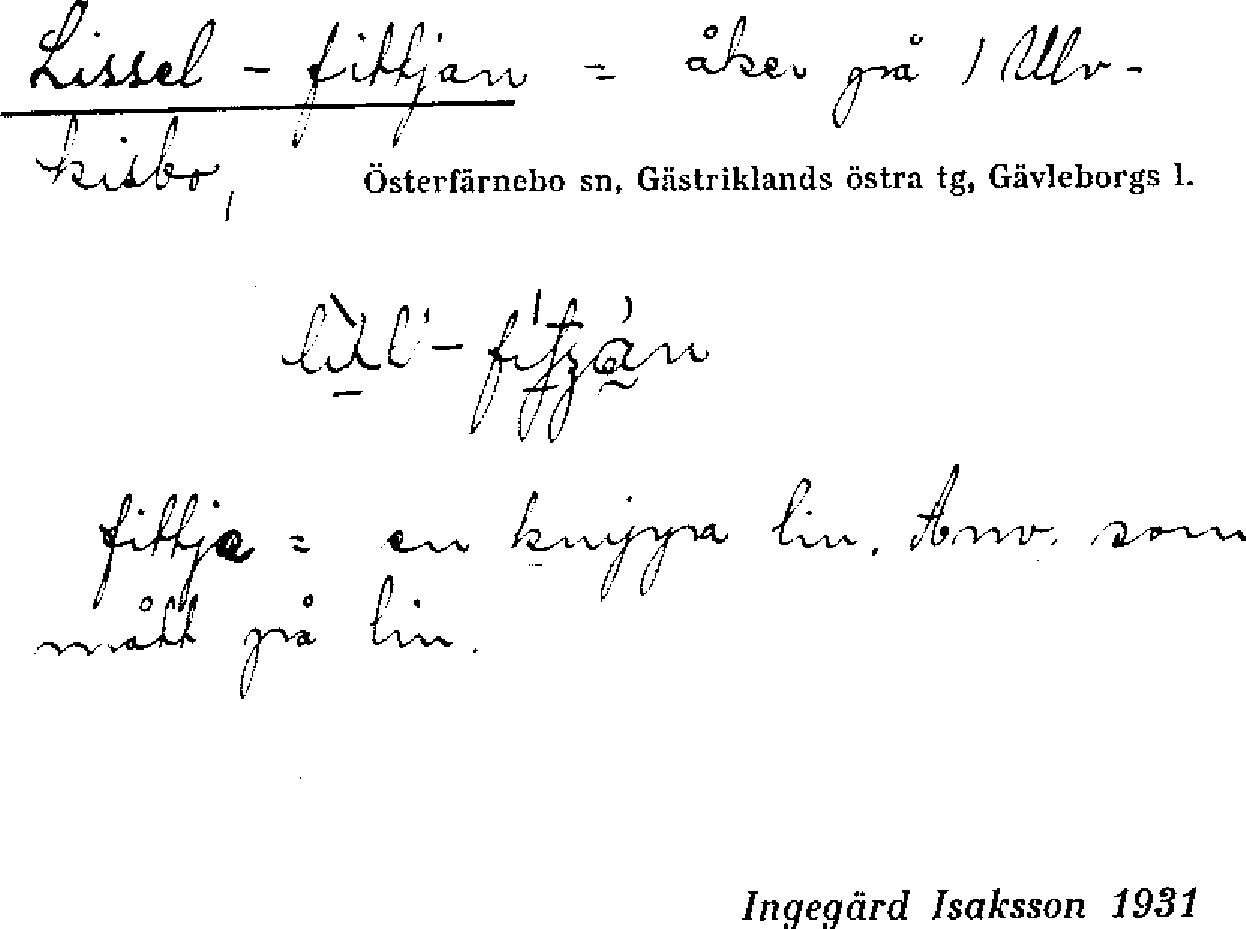 Lissel - fittjan = åker på 1 Ulv-
kisbo,
Österfärnebo sn, Gästriklands östra tg, Gävleborgs l.
fittja = en knippa lin. Anv. som
mått på lin.
Ingegärd Isaksson 1931